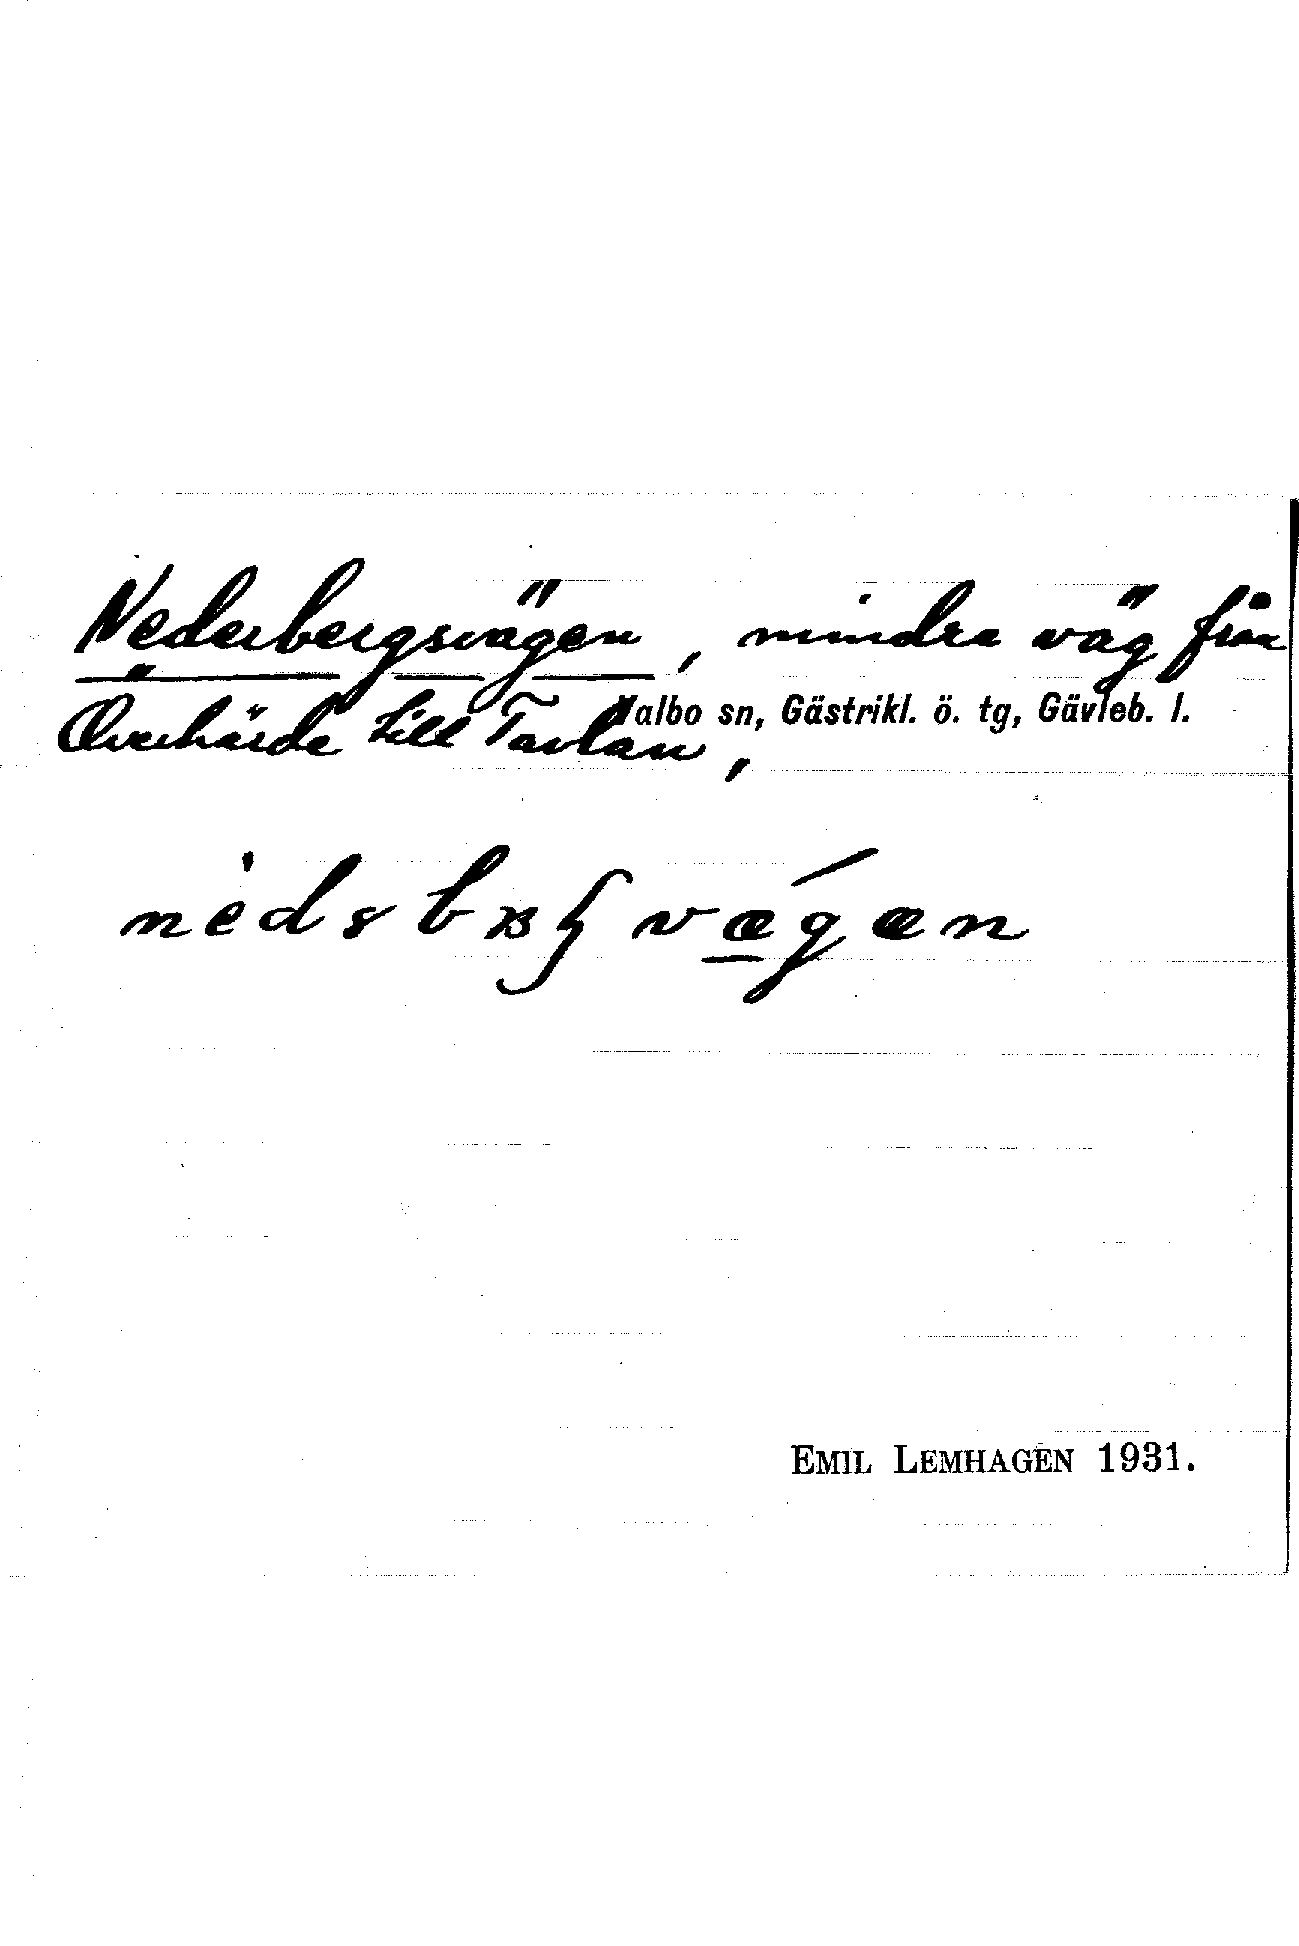 Nederbergsvägen, mindre väg från
Valbo sn, Gästrikl. ö. tg, Gävleb. l.
Överhärde till Tavlan,
EMIL LEMHAGEN 1931.